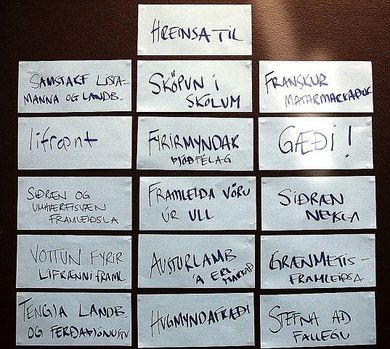 HREINSA TIL
SAMSTARF LISTA-
MANNA OG LANDB.
SKÖPUN Í
SKÓLUM
FRANSKUR
MATARMARKAÐUR
lífrænt
FYRIRMYNDAR
ÞJÓÐFÉLAG
GÆÐI!
SIÐRÆN OG
UMHVERFISVÆN
FRAMLEIÐSLA
FRAMLEIÐA VÖRU
ÚR ULL
SIÐRÆN
NEYSLA
VOTTUN FYRIR
LÍFRÆNNI FRAML.
AUSTURLAMB
Á
GRÆNMETIS-
FRAMLEIÐSLA
TENGJA LANDB.
OG FERÐAÞJÓNUSTU
HUGMYNDAFRÆÐI
STEFNA AÐ
FALLEGU